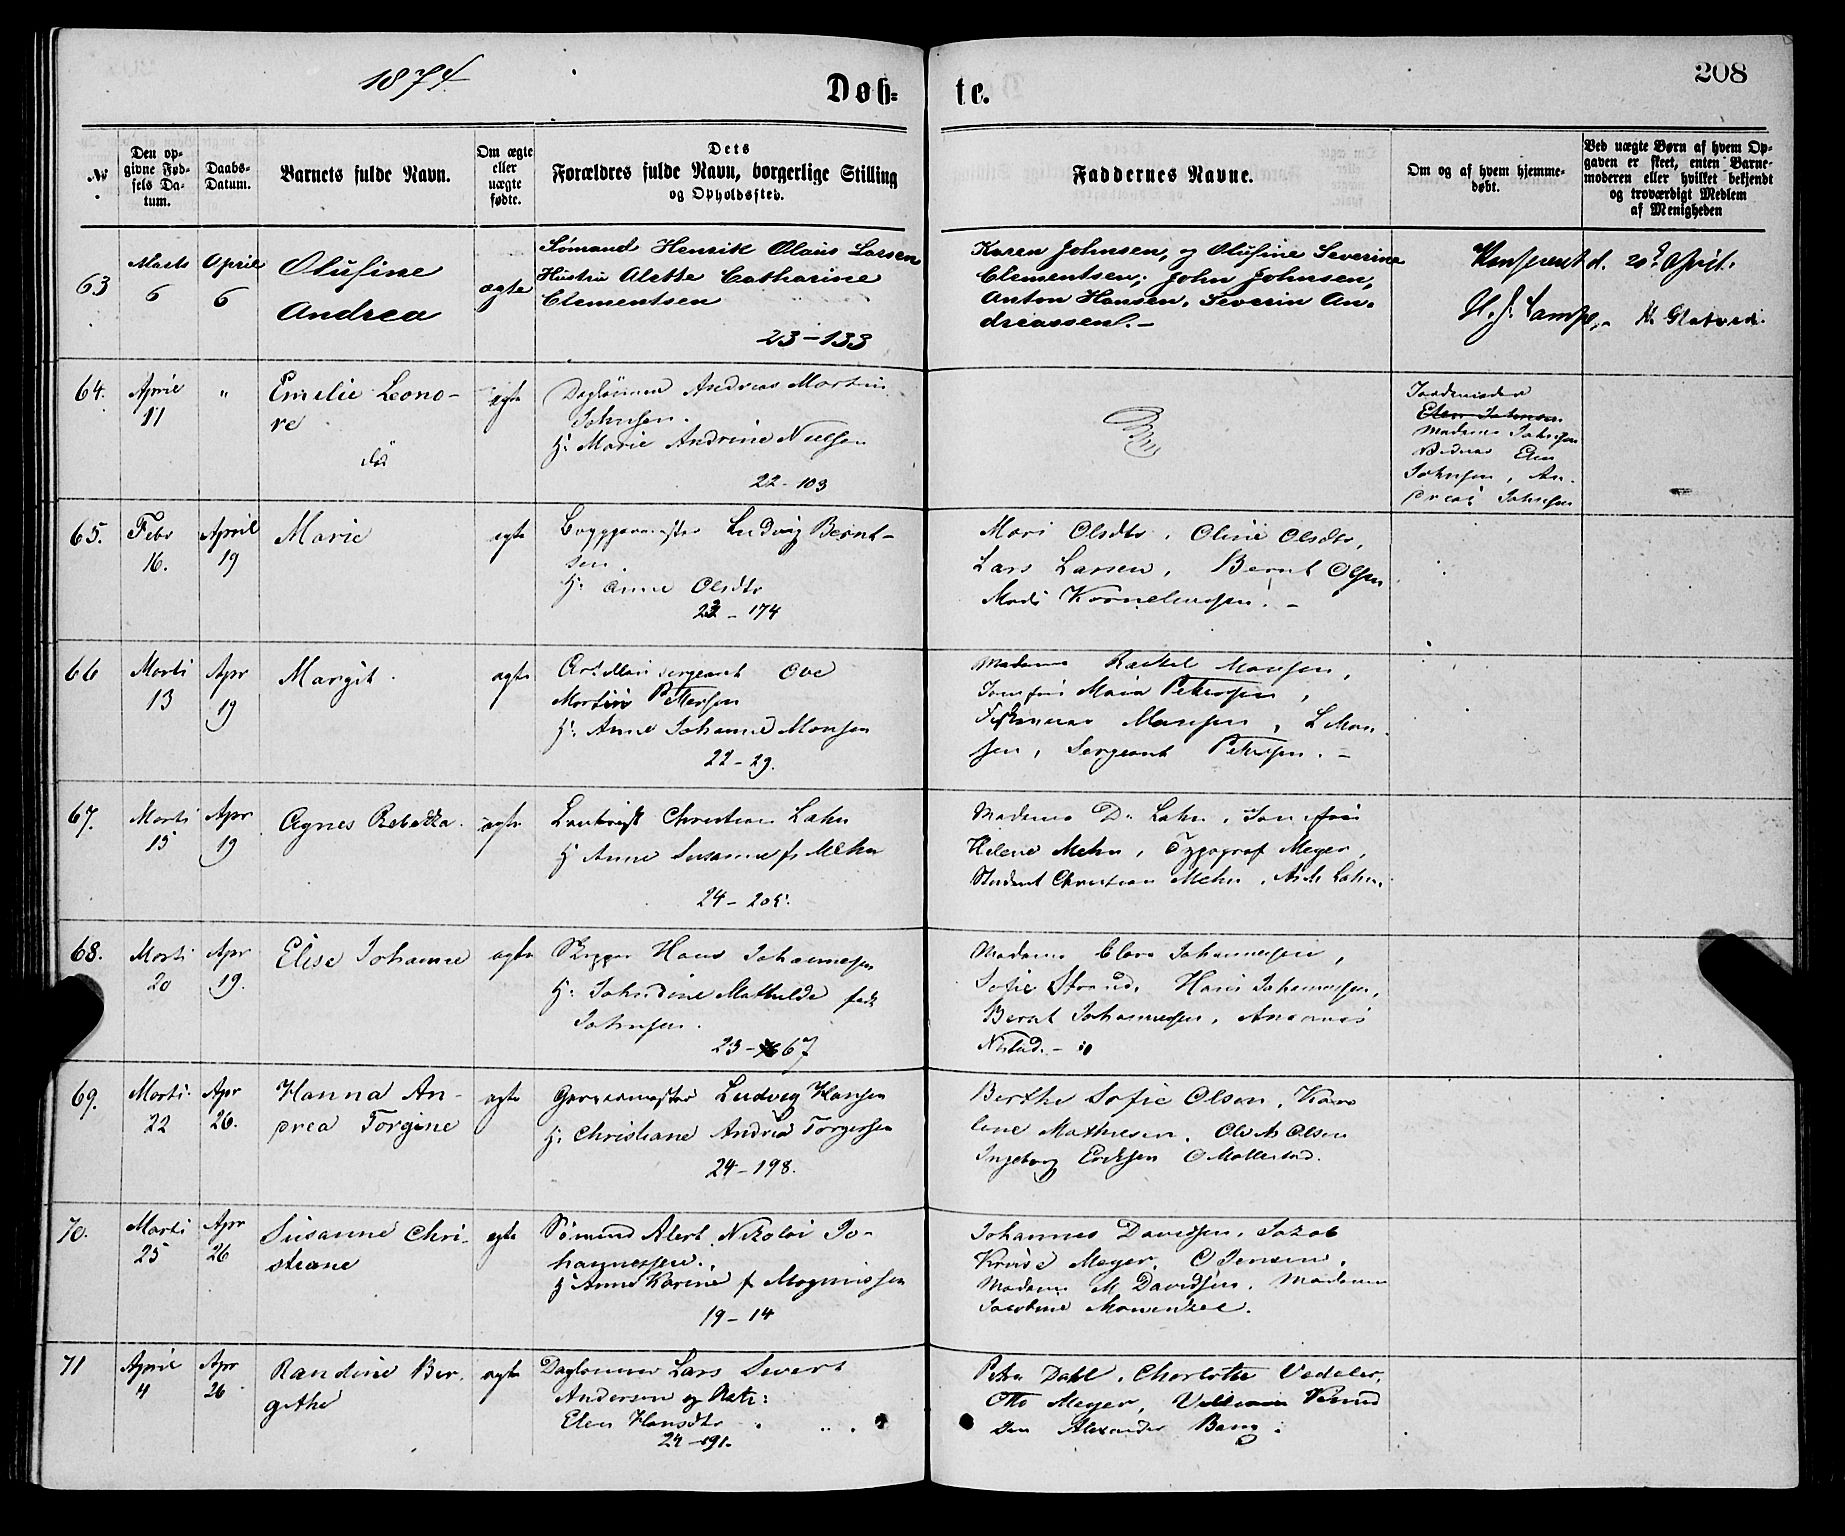 1874
Døb=
te.
208
№
Den op-
givne Fød-
sels Da-
tum.
Daabs-
Datum.
Barnets fulde Navn.
Om ægte
eller
uægte
fødte.
Dets
Forældres fulde Navn, borgerlige Stilling
og Opholdssted.
Faddernes Navne.
Om og af hvem hjemme-
døbt.
Ved uægte Børn af hvem Op-
gaven er skeet, enten Barne-
moderen eller hvilket bekjendt
og troværdigt Medlem
af Menigheden
63
Marts
6
April
6
Olufine
Andrea
ægte
Sømand Henrik Olaus Larsen
Hustru Alette Catharine
Clementsen
23-133
Karen Johnsen, og Olufine Severine
Clementsen; John Johnsen,
Anton Hansen, Severin An-
dreassen.-
d. 20de April.
64.
April
11
"
Emelie Leono-
re
død
ægte
Daglønner Andreas Martin
Johnsen.
H: Marie Andrine Nielsen
22-103
Jordemoder
Elen Johnsen
Madame Johnsen
Elen
Johnsen, An-
dreas Johnsen
65.
Febr
16.
April
19
Marie
ægte
Bryggermester Ludvig Bernt-
sen.
H: Anne Olsdtr
23-174
Mari Olsdtr, Oline Olsdtr,
Lars Larsen, Bernt Olsen
Mads Kornelensen.-
66
Marti
13
Apr
19
Margit.
ægte
Artilleri sergeant Ove
Martin Pettersen
H: Anne Johanne Monsen
22-29.
Madame Rachel Monsen,
Jomfru Maria Petersen,
Monsen, L Mon-
sen, Sergeant Petersen.-
67.
Marti
15
Apr
19
Agnes Rebekka.
ægte
Christian Lahn
H: Anne Susanne f. Mehn
24-205.
Madame D. Lahn, Jomfru
Helene Mehn, Typograf Meyer,
Student Christian Mehn, Lahn.
68.
Marti
20
Apr
19.
Elise Johanne
ægte
Skipper Hans Johannesen
H: Johndine Mathilde født
Johnsen.
23-67
Madame Clara Johannesen,
Sofie Strand, Hans Johannesen,
Bernt Johannesen, Andreas
69.
Marti
22
Apr
26.
Hanna An-
drea Torgine
ægte
Garvermester Ludvig Hansen
H: Christiane Andrea Torgersen
24-198.
Berthe Sofie Olsen, Karo
line Mathiesen, Ole A Olsen
Ingeborg Eriksen
70.
Marti
25
Apr
26
Susanne Chri-
stiane
ægte
Sømand Alert Nikolai Jo-
hannessen.
H: Anne Karine f Magnussen
19-14
Johannes Davidsen, Jakob
Kruse Meyer, O Jensen,
Madame M Davidsen, Madame
Jacobine
71
April
4
Apr
26
Randine Ber-
githe
ægte
Daglønner Lars Sivert
Andersen og
Elen Hansdtr
24-191.
Petra Dahl, Charlotte Vedeler,
Otto Meyer,
Alexander Bang.